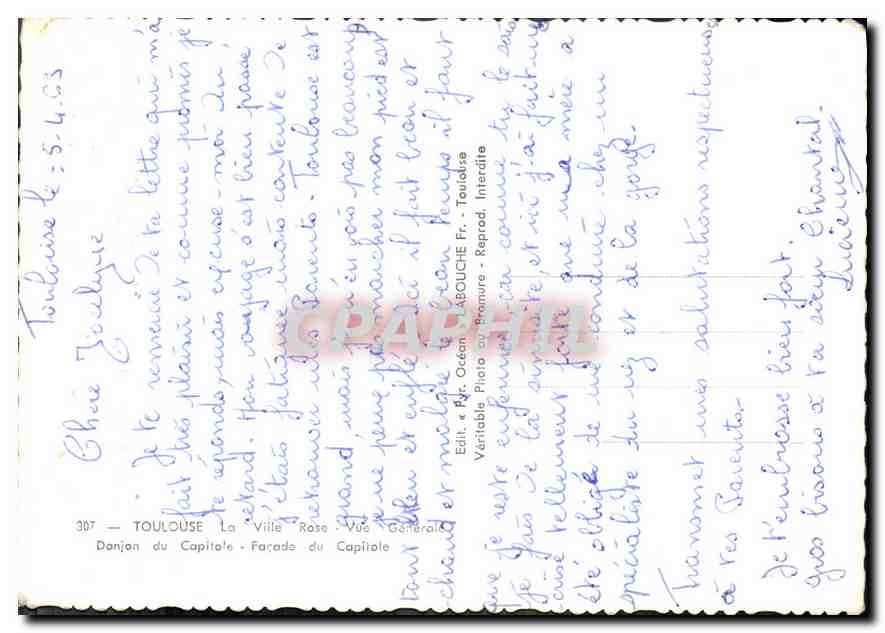 Toulouse le = 5-4.63
Chère Jocelyne
Je te remercie de ta lettre qui m'a
fait très plaisir et comme promis je
te réponds, mais excuse-moi du
retard. Mon voyage s'est bien passé
j'étais mais contente de
retrouver mes Parents. Toulouse est
grand, mais j'en vois pas beaucoup
je ne peux pas marcher mon pied est
tout bleu et enflé. Ici il fait beau et
chaud et malgré le beau temps il faut
que je reste enfermée car comme tu le sais
je fais de la sinusite, et ici j'ai fait une
crise tellement forte que ma mère a
été obligée de me conduire chez un
spécialiste du nez et de la gorge.
Transmet mes salutations respectueuses
à tes Parents.
Je t'embrasse bien fort.
gros bisous à ta sœur Chantal.
Lucienne
Edit. « Pyr. Océan ABOUCHE Fr. - Toulouse
Véritable Photo au Bromure - Reprod. Interdite
307 — TOULOUSE La Ville Rose - Vue Générale
Donjon du Capitole - Façade du Capitole
CPAPHIL